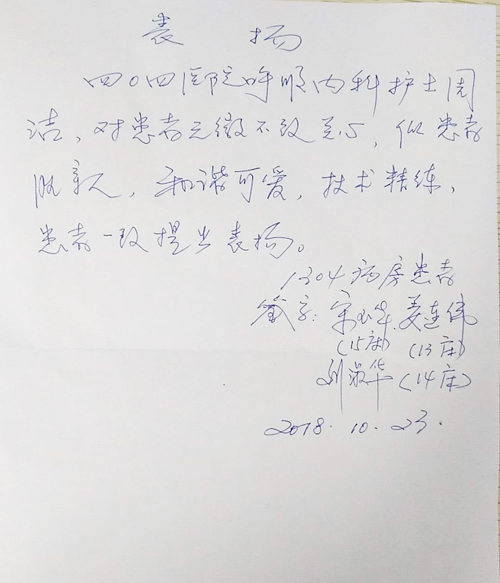 表 扬
四〇四医院呼吸内科护士周
洁，对患者无微不致关心，似患者
如亲人，和谐可爱，技术精练，
患者一致提出表扬。
1304病房患者
签字：宋玉华 姜连伟
(15床) (13床)
刘淑华 (14床)
2018.10.23.